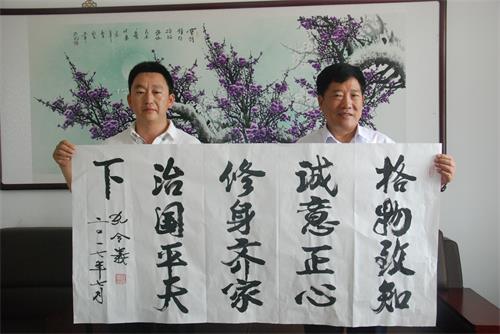 格物致知
诚意正心
修身齐家
治国平天
下
二〇一七年七月
孔令义